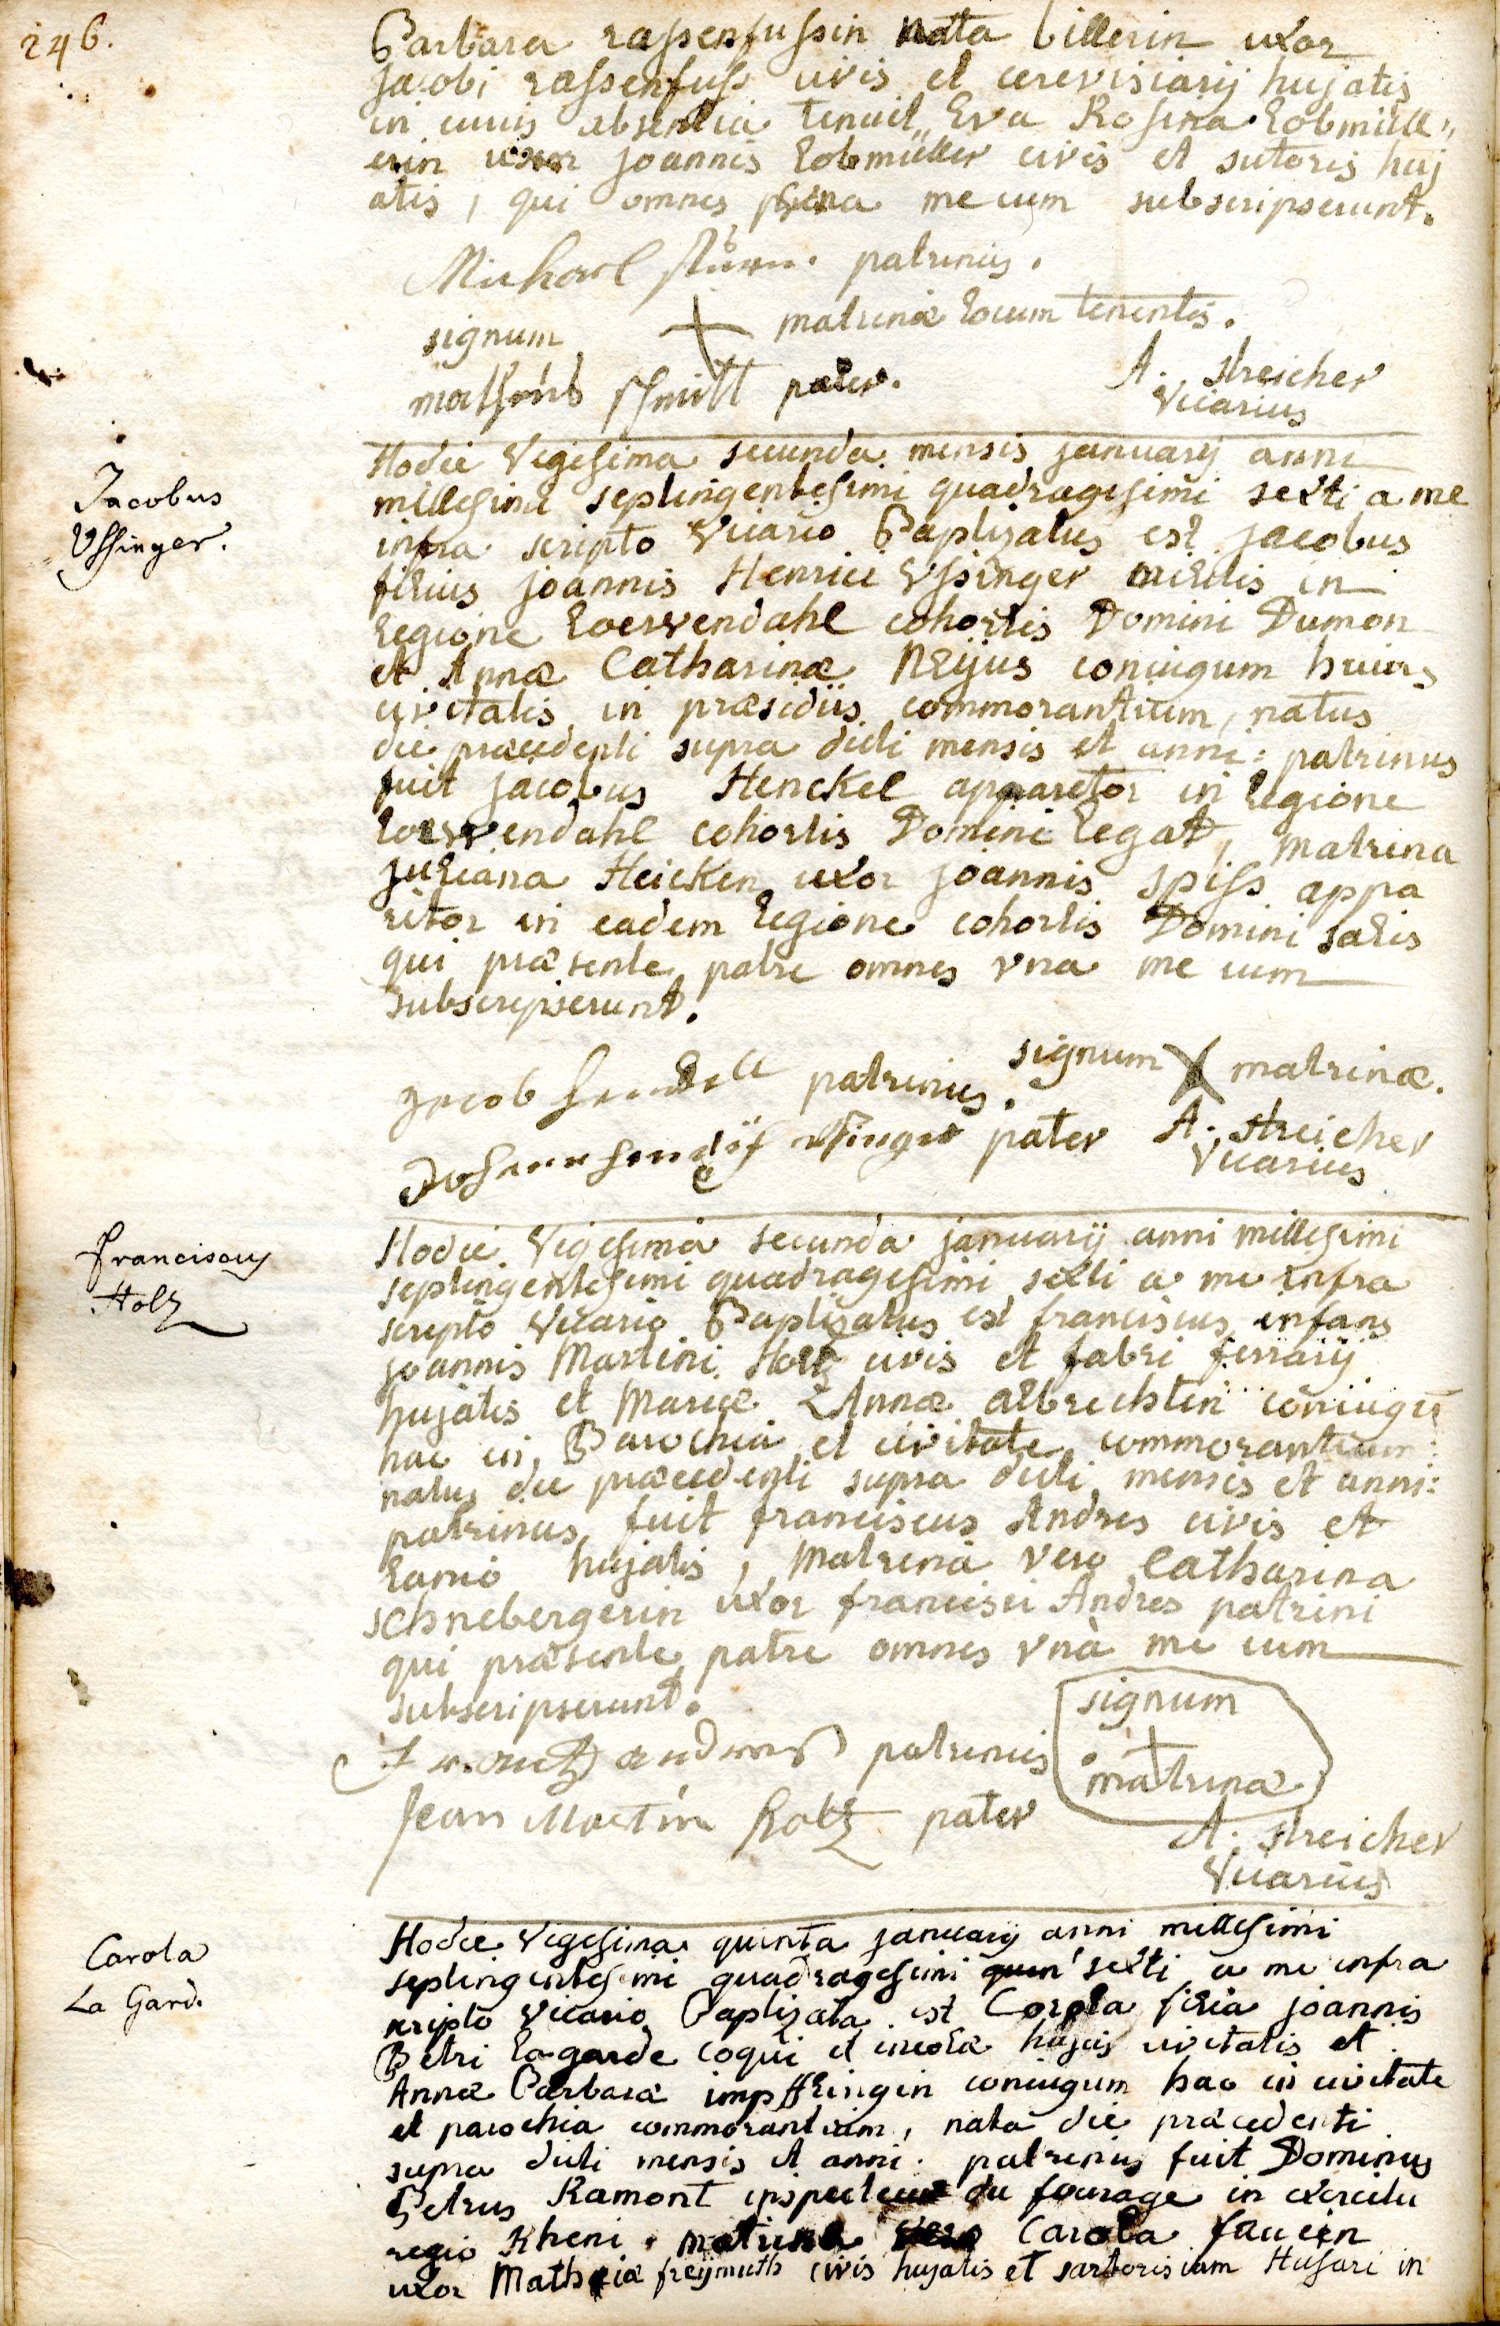 246.
Barbara rassenfussin nata billerin uxor
Jacobi rassenfuss civis et cerevisiarij hujatis
in cuius absentia tenuit Eva Rosina Lobmüll„
erin uxor joannis Lobmüller civis et sutoris huj
atis, qui omnes una mecum subscripserunt.
Michael patrinus.
signum + matrinæ locum tenentis.
schmitt pater.
A. streicher
Vicarius
Jacobus
Ussinger.
Hodie Vigesima secunda mensis januarij anni
millesimi septingentesimi quadragesimi sexti a me
infra scripto Vicario Baptizatus est jacobus
filius joannis Henrici Ussinger militis in
legione Loewendahl cohortis Domini Dumon
et Annæ Catharinæ Neijus coniugum huius
civitatis in præsidiis commorantium, natus
die præcedenti supra dicti mensis et anni: patrinus
fuit jacobus Henckel apparetor in legione
Loewendahl cohortis Domini Legat, matrina
juliana Heicken uxor joannis spiss appa
ritor in eadem legione cohortis Domini salis
qui præsente patre omnes vna me cum
subscripserunt.
Jacob patrinus.
signum X matrinæ.
Johann pater
A. streicher
Vicarius
Franciscus
Holz
Hodie Vigesima secunda januarij anni millesimi
septingentesimi quadragesimi sexti a me infra
scripto Vicario Baptizatus est franciscus infans
joannis Martini Holtz civis et fabri ferrarij
hujatis et Mariæ Annæ albrechtin coniugū
hac in Parochia et civitate commorantium:
natus die præcedenti supra dicti mensis et anni:
patrinus fuit franciscus Andres civis et
lanio hujatis, Matrina vero Catharina
schnebergerin uxor francisci Andres patrini
qui præsente patre omnes vnà me cum
subscripserunt.
patrinus
signum
+
matrinæ
Jean Martin holtz pater
A. streicher
Vicarius
Carola
La Gard.
Hodie Vigesima quinta januarij anni millesimi
septingentesimi quadragesimi sexti a me infra
scripto Vicario Baptizata est Carola filia joannis
Petri Lagarde coqui et incolæ hujus civitatis et
Annæ Barbaræ coniugum hac in civitate
et parochia commorantium, nata die præcedenti
supra dicti mensis et anni. patrinus fuit Dominus
Petrus Ramont inspecteur du fourage in exercitu
regio Rheni. matrina vero Carola faucin
uxor Mathiæ freijmuth civis hujatis et sartoris cum Husari in